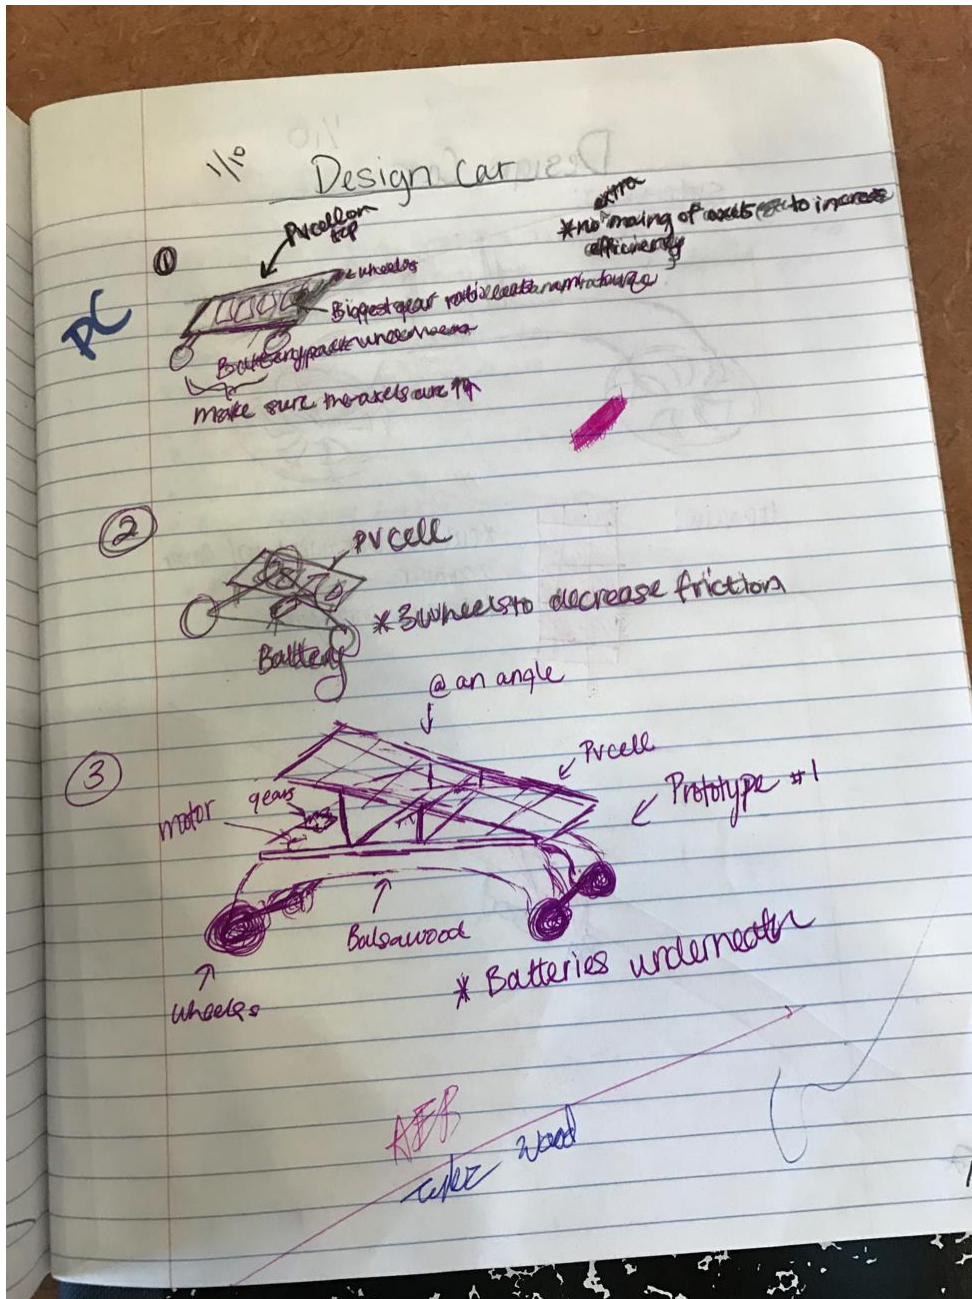 1/10
Design car
PV cell on
top
extra
*no moving of axels to increase
efficiency
①
wheels
PC
Biggest gear ratio
Battery pack underneath
make sure the axels are
②
PV cell
*3 wheels to decrease friction
Battery
@ an angle
③
PV cell
gears
Prototype #1
motor
Balsawood
* Batteries underneath
wheels
AEB
Wood